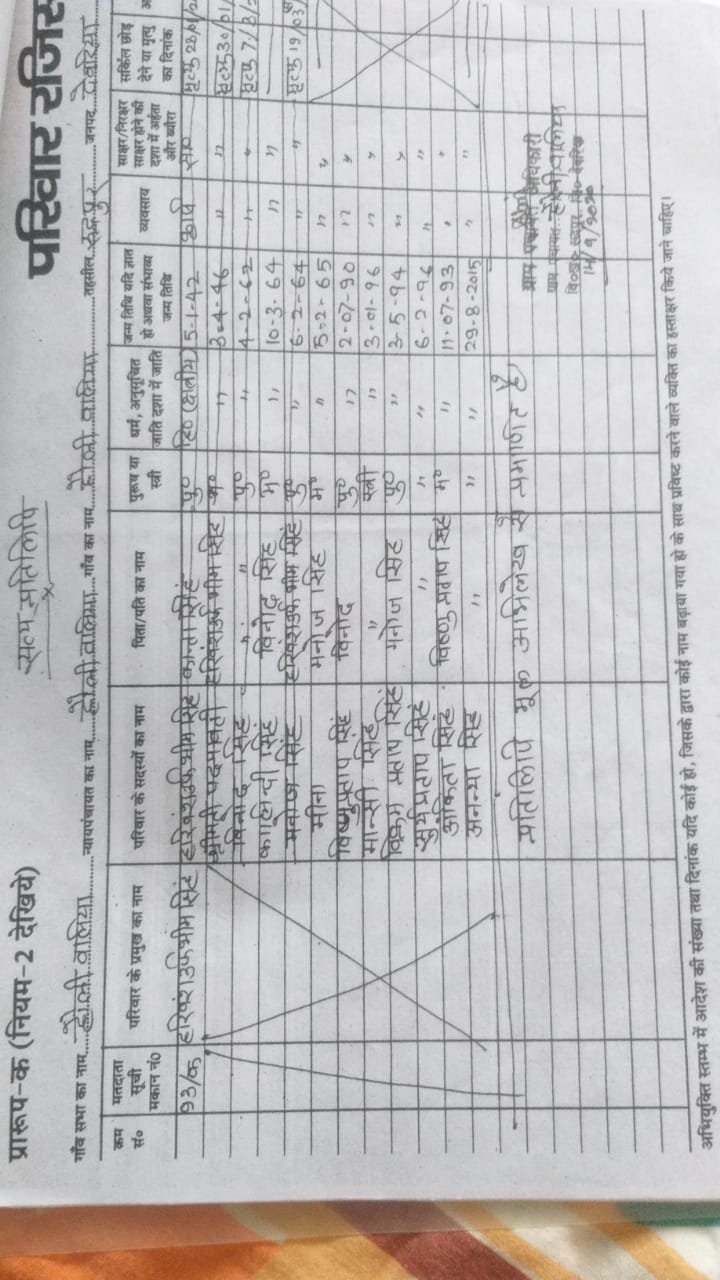 सत्य प्रतिलिपि
प्रारूप-क (नियम-2 देखिये)
परिवार रजिस
गाँव सभा का नाम हौली वालिया न्यायपंचायत का नाम हौली वालिया गाँव का नाम हौली वालिया तहसील रुद्रपुर जनपद देवरिया
क्रम सं० मतदाता सूची मकान नं0 परिवार के प्रमुख का नाम परिवार के सदस्यों का नाम पिता/पति का नाम पुरूष या स्त्री धर्म, अनुसूचित जाति दशा में जाति जन्म तिथि यदि ज्ञात हो अथवा संभाव्य जन्म तिथि व्यवसाय साक्षर/निरक्षर साक्षर होने की दशा में अर्हता और ब्यौरा सर्किल छोड़ देने या मृत्यु का दिनांक
93/क हरिवंश उर्फ भीम सिंह हरिवंश उर्फ भीम सिंह सिंह पु० हि० (क्षत्रीय) 5-1-42 कृषि सा० मृत्यु 28/01/2
श्रीमती पदमावती हरिवंश उर्फ भीम सिंह म० " 3-4-46 " " मृत्यु 30/01/
विनोद सिंह " " पु० " 4-2-62 " " मृत्यु 7/8/
कालिन्दी सिंह विनोद सिंह म० " 10-3-64 " "
मनोज सिंह हरिवंश उर्फ भीम सिंह पु० " 6-2-64 " " मृत्यु 19/03/
मीना मनोज सिंह म० " 5-2-65 " "
विष्णु प्रताप सिंह विनोद पु० " 2-07-90 " "
मान्सी सिंह " स्त्री " 3-01-96 " "
विक्रम प्रताप सिंह मनोज सिंह पु० " 3-5-94 " "
सुर्य प्रताप सिंह " " " 6-2-96 " "
अंकिता सिंह विष्णु प्रताप सिंह म० " 11-07-93 " "
अनन्या सिंह " " " 29-8-2015 " "
प्रतिलिपि मूल अभिलेख से प्रमाणित है
अधिकारी
14/9/2020
अभियुक्ति स्तम्भ में आदेश की संख्या तथा दिनांक यदि कोई हो, जिसके द्वारा कोई नाम बढ़ाया गया हो के साथ प्रविष्ट करने वाले व्यक्ति का हस्ताक्षर किये जाने चाहिए।